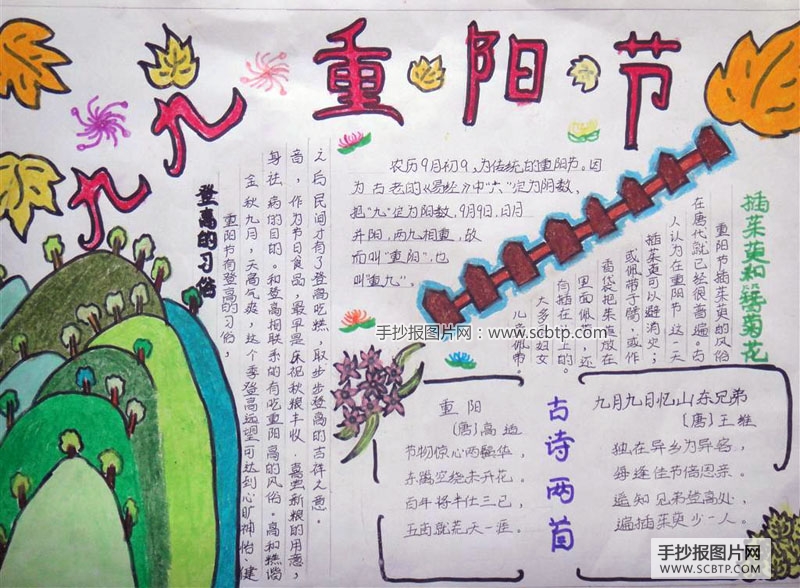 九九重阳节
农历9月初9,为传统的重阳节。因
为古老的《易经》中“六”定为阴数,
把“九”定为阳数,9月9日,日月
并阳,两九相重,故
而叫“重阳”,也
叫“重九”。
登高的习俗
重阳节有登高的习俗,
金秋九月,天高气爽,这个季登高远望可达到心旷神怡 健
身祛病的目的。和登高相联系的有吃重阳高的风俗。高和糕谐
音,作为节日食品,最早是庆祝秋粮丰收 喜尝新粮的用意,
之后民间才有了登高吃糕,取步步登高的吉祥之意。
插茱萸和簪菊花
重阳节插茱萸的风俗
在唐代就已经很普遍。古
人认为在重阳节 这一天
插茱萸可以避消灾;
或佩带于臂,或作
香袋把茱萸放在
里面佩带,还
有插在头上的。
大多是妇女
儿童佩带
手抄报图片网:www.scbtp.com
古诗两首
重阳
(唐)高适
节物惊心两鬓华,
东篱空绕未开花。
百年将半仕三已,
五亩就荒天一涯。
九月九日忆山东兄弟
(唐)王维
独在异乡为异客,
每逢佳节倍思亲。
遥知兄弟登高处,
遍插茱萸少一人。
手抄报图片网
WWW.SCBTP.COM